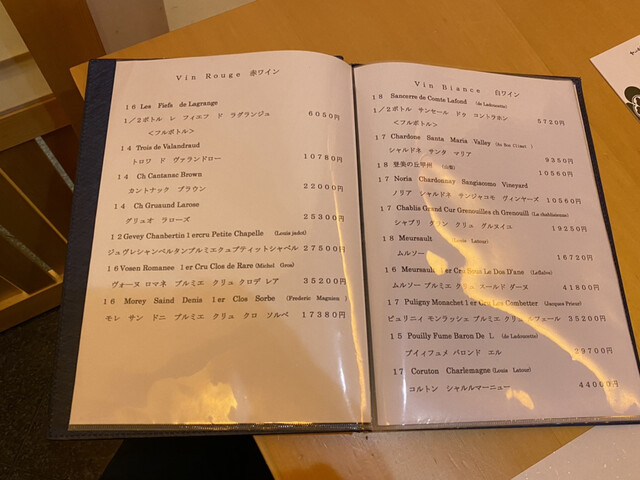 Vin Rouge 赤ワイン
16 Les Fiefs de Lagrange
1/2ボトル レ フィエフ ド ラグランジュ 6050円
<フルボトル>
14 Trois de Valandraud
トロワ ド ヴァランドロー 10780円
14 Ch Cantanac Brown
カントナック ブラウン 22000円
14 Ch Gruaund Larose
グリュオ ラローズ 25300円
12 Gevey Chanbertin 1 ercru Petite Chapelle (Louis jadot)
ジュヴレシャンベルタンプルミエクュプティットシャペル 27500円
16 Vosen Romanee 1 er Cru Clos de Rare (Michel Gros)
ヴォーヌ ロマネ プルミエ クリュ クロ デ レア 35200円
16 Morey Saind Denis 1 er Clos Sorbe (Frederic Magnien)
モレ サン ドニ プルミエ クリュ クロ ソルベ 17380円
Vin Blance 白ワイン
18 Sancerre de Comte Lafond (de Ladoucette)
1/2ボトル サンセール ドゥ コントラホン 5720円
<フルボトル>
17 Chardone Santa Maria Valley (Au Bon Climat)
シャルドネ サンタ マリア 9350円
18 登美の丘甲州 10560円
17 Noria Chardonnay Sangiacomo Vineyard
ノリア シャルドネ サンジャコモ ヴィンヤーズ 10560円
17 Chablis Grand Cur Grenouilles ch Grenouill (La chablisienne)
シャブリ グラン クリュ グルヌイユ 19250円
18 Meursault (Louis Latour)
ムルソー 16720円
16 Meursault 1 er Cru Sous Le Dos D'ane (Leflaive)
ムルソー プルミエ クリュ スールド ダーヌ 41800円
17 Puligny Monachet 1 er Cru Les Combetter (Jacques Prieur)
ピュリニィ モンラッシェ プルミエ クリュ ルフェール 35200円
15 Pouilly Fume Baron De L (de Ladoucette)
プイィフュメ バロンド エル 29700円
17 Coruton Charlemagne (Louis Latour)
コルトン シャルルマーニュー 44000円